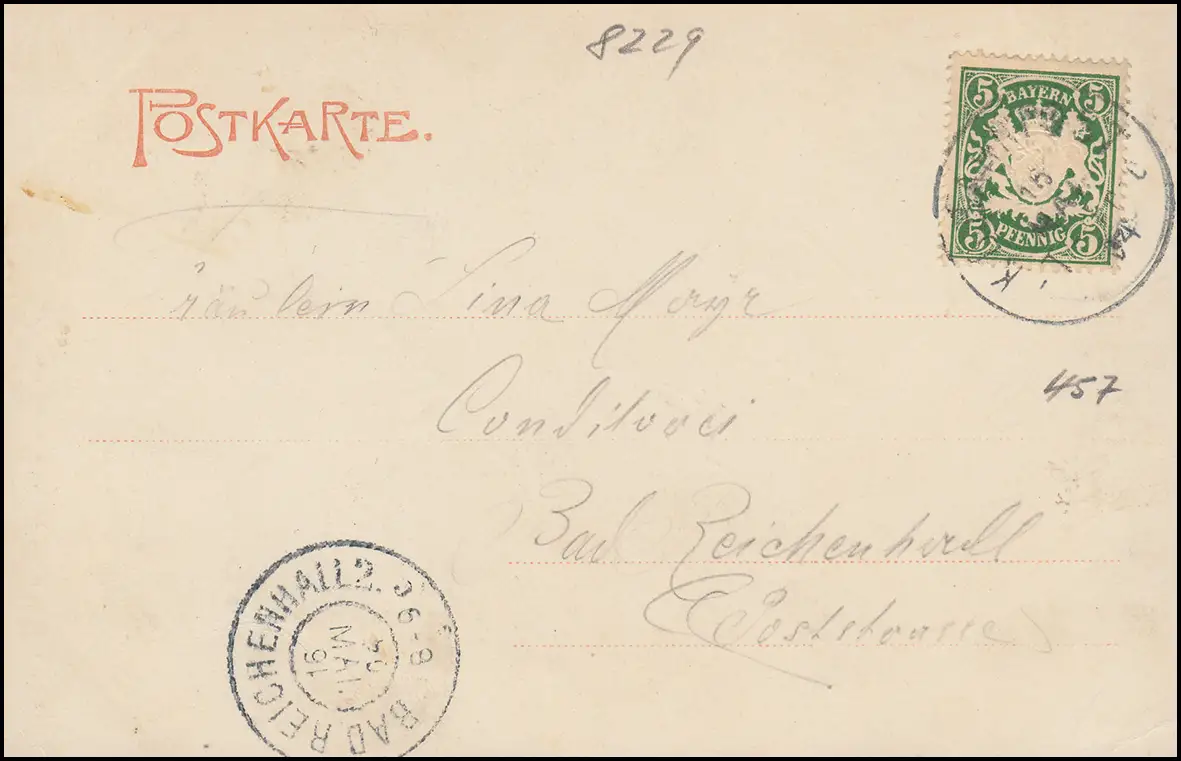 8229
POSTKARTE.
5 BAYERN 5
5 PFENNIG 5
15
räulein Lina Mayr
457
Conditorei
Bad Reichenhall
(Poststrasse)
BAD REICHENHALL 2.
6-8
16
MAI.